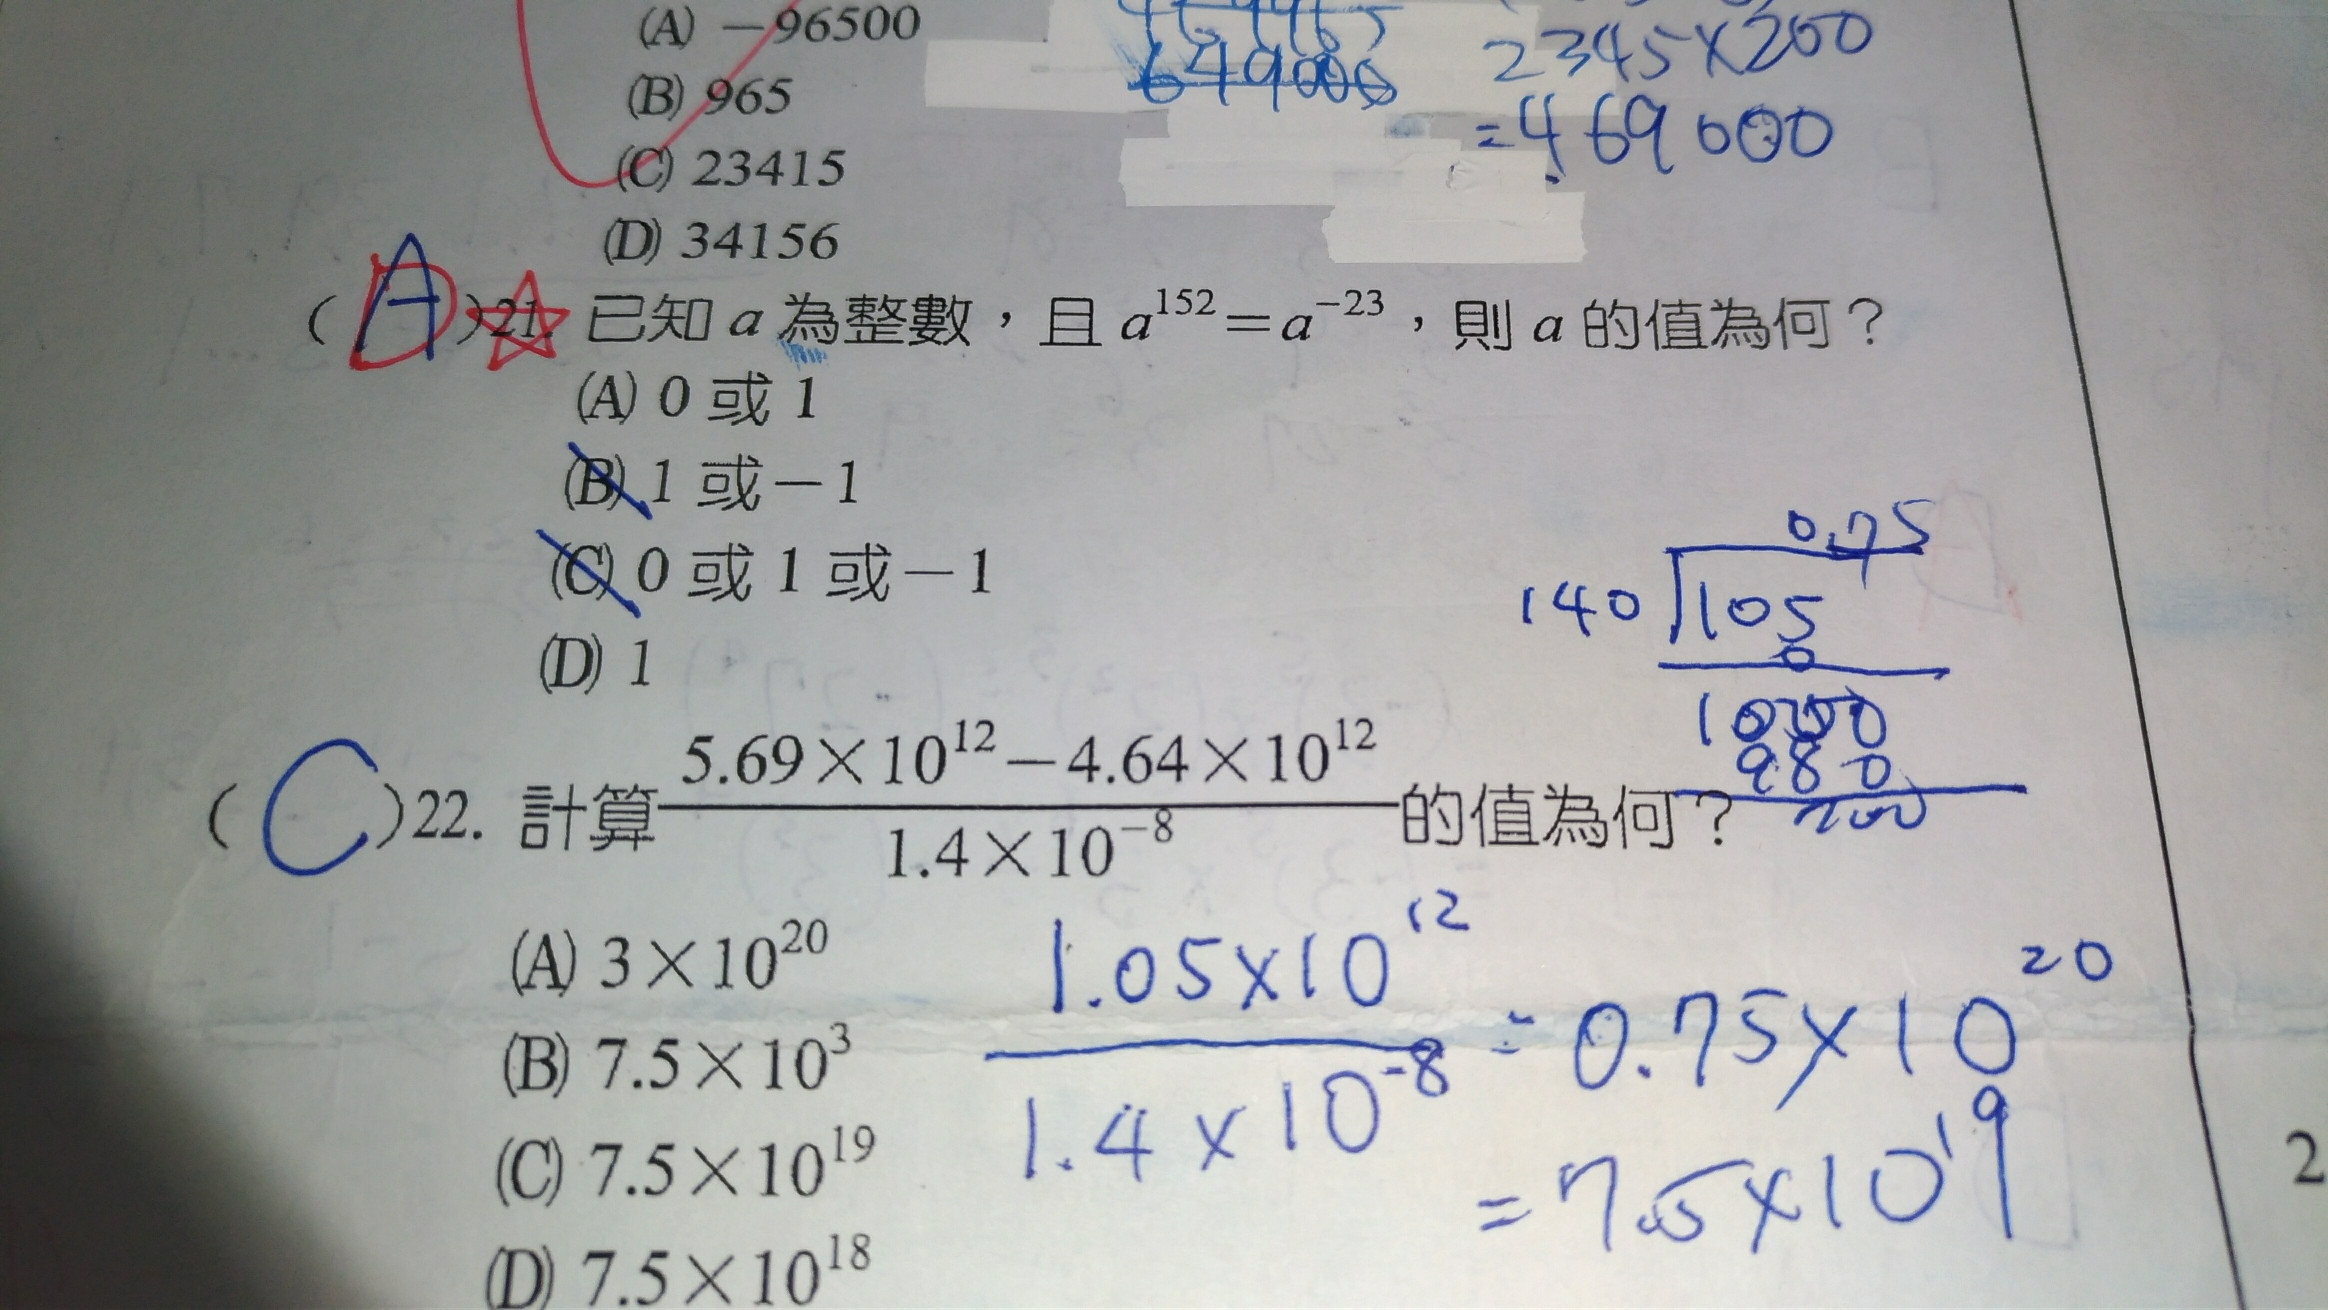 (A) －96500
(B) 965
(C) 23415
(D) 34156
2345×200
=469000
649000
( A )21. 已知 a 為整數，且 a¹⁵²＝a⁻²³，則 a 的值為何？
D
(A) 0 或 1
(B) 1 或－1
(C) 0 或 1 或－1
(D) 1
0.75
140 105
0
980
( C )22. 計算 5.69×10¹²－4.64×10¹² / 1.4×10⁻⁸ 的值為何？
(A) 3×10²⁰
(B) 7.5×10³
(C) 7.5×10¹⁹
(D) 7.5×10¹⁸
1.05×10¹² / 1.4×10⁻⁸ = 0.75×10²⁰
=7.5×10¹⁹
2